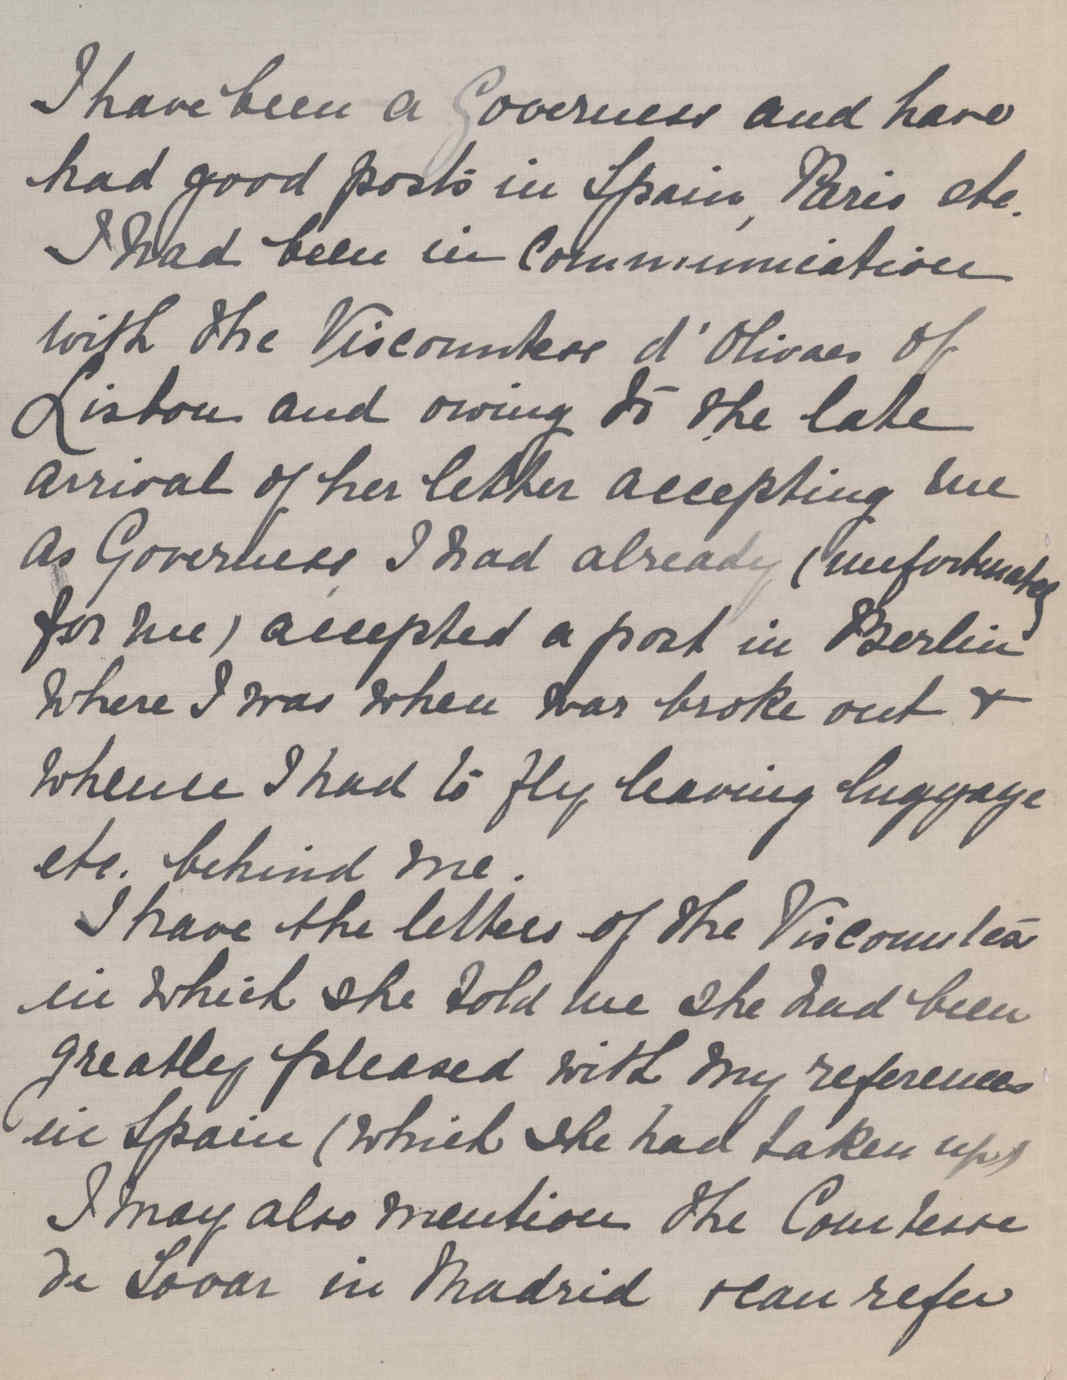 I have been a Governess and have
had good posts in Spain, Paris etc.
I had been in communication
with the Viscountess d'Olivaes of
Lisbon and owing to the late
arrival of her letter accepting me
as Governess I had already (unfortunately
for me) accepted a post in Berlin
where I was when war broke out &
whence I had to fly leaving luggage
etc. behind me.
I have the letters of the Viscountess
in which she told me she had been
greatly pleased with my references
in Spain (which she had taken up)
I may also mention the Comtesse
de Tovar in Madrid & can refer